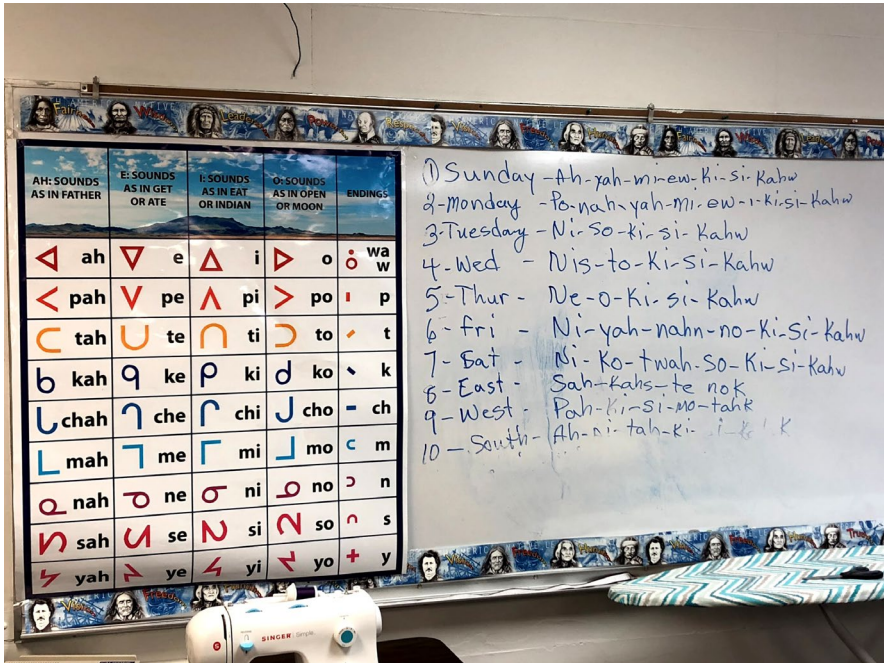 AH: SOUNDS AS IN FATHER
E: SOUNDS AS IN GET OR ATE
I: SOUNDS AS IN EAT OR INDIAN
O: SOUNDS AS IN OPEN OR MOON
ENDINGS
ᐊ ah ᐁ e ᐃ i ᐅ o wa w
ᐸ pah ᐯ pe ᐱ pi ᐳ po ᑊ p
ᑕ tah ᑌ te ᑎ ti ᑐ to ᐟ t
ᑲ kah ᑫ ke ᑭ ki ᑯ ko ᐠ k
ᒐ chah ᒉ che ᒋ chi ᒍ cho ᐨ ch
ᒪ mah ᒣ me ᒥ mi ᒧ mo ᒼ m
ᓇ nah ᓀ ne ᓂ ni ᓄ no ᐣ n
ᓴ sah ᓭ se ᓯ si ᓱ so ᐢ s
ᔭ yah ᔦ ye ᔨ yi ᔪ yo ᐩ y
① Sunday - Ah-yah-mi-ew-Ki-si-Kahw
2-monday - Po-nah-yah-mi-ew-i-Ki-si-Kahw
3-Tuesday - Ni-So-Ki-si-Kahw
4-Wed - Nis-to-Ki-Si-Kahw
5-Thur - Ne-o-Ki-si-Kahw
6-fri - Ni-yah-nahn-no-Ki-Si-Kahw
7-Sat - Ni-Ko-twah-So-Ki-Si-Kahw
8-East - Sah-Kahs-te nok
9-West - Pah-Ki-Si-mo-tahk
10-South - Ah-
SINGER Simple